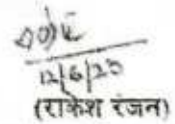 12/6/20
(राकेश रंजन)